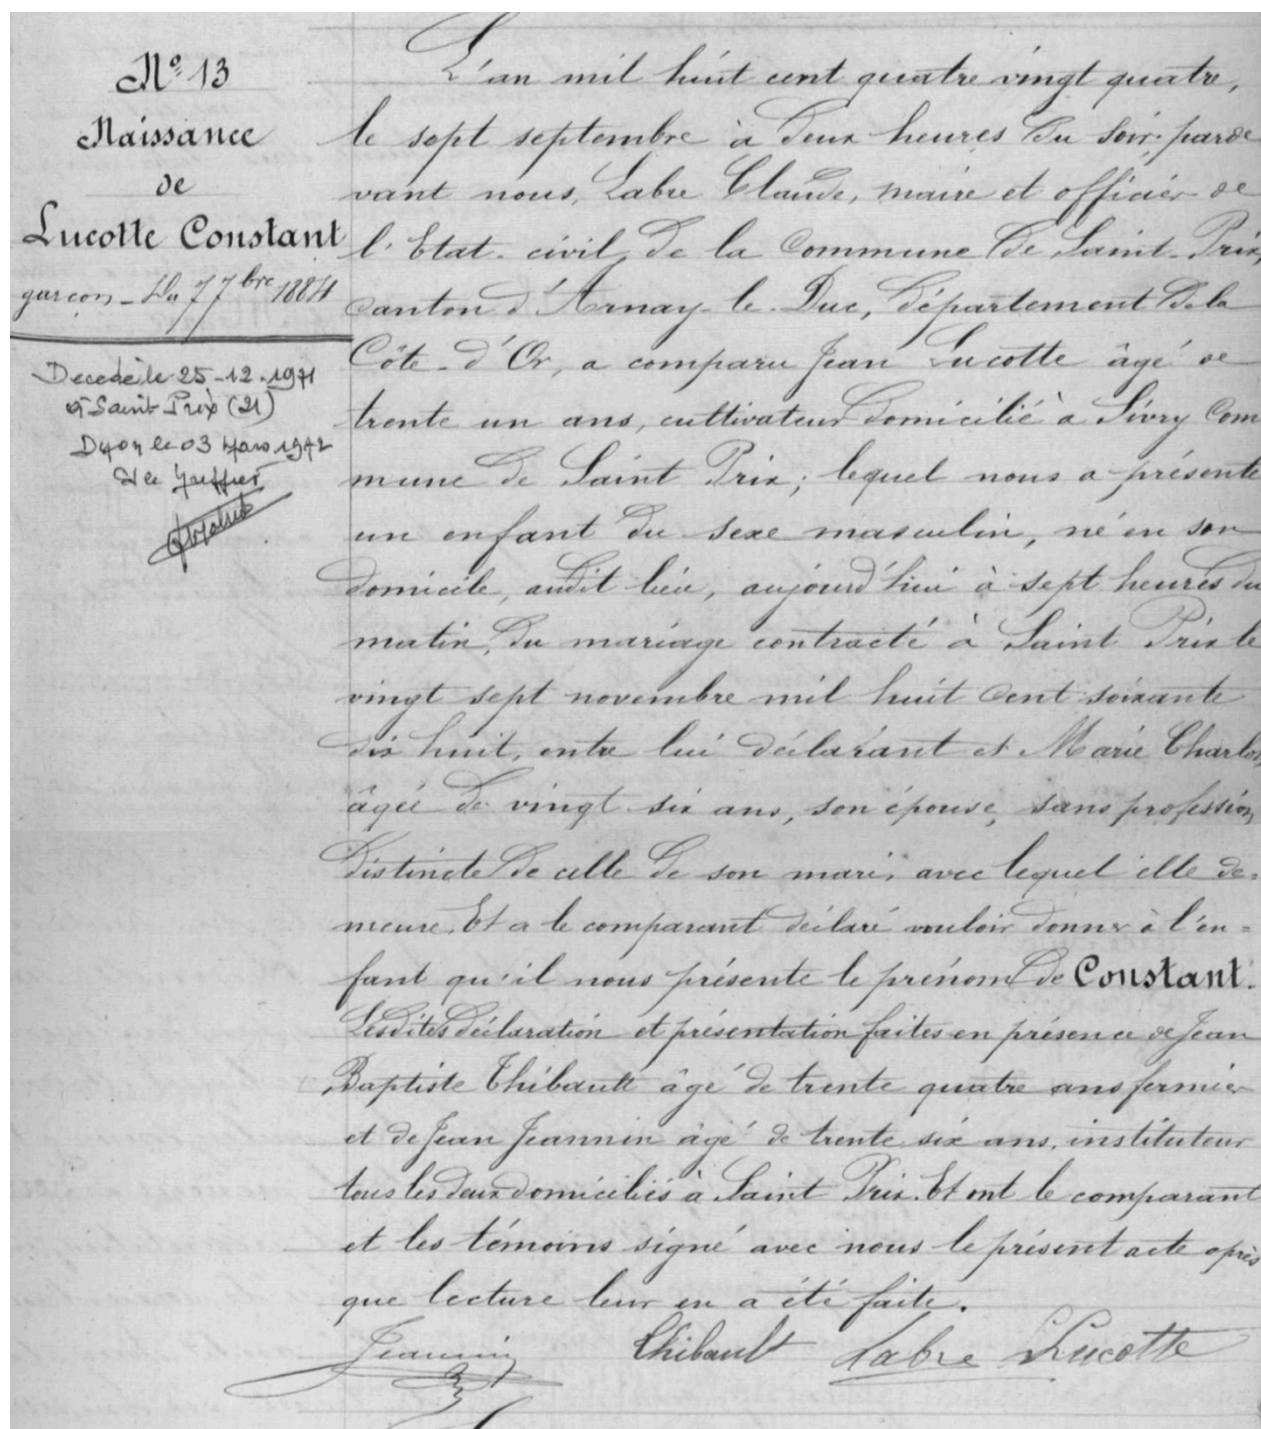 Nº 13
Naissance
de
Lucotte Constant
garçon - Du 7 7bre 1884
Décédé le 25-12-1971
à Saint Prix (21)
Dijon le 03 Mars 1972
Le Greffier
L'an mil huit cent quatre vingt quatre,
le sept septembre à deux heures du soir, parde
vant nous, Labre Claude, maire et officier de
l'Etat-civil de la Commune de Saint-Prix,
Canton d'Arnay-le-Duc, département de la
Côte-d'Or, a comparu Jean Lucotte âgé de
trente un ans, cultivateur domicilié à Sivry Com
mune de Saint Prix; lequel nous a présenté
un enfant du sexe masculin, né en son
domicile, audit lieu, aujourd'hui à sept heures du
matin, du mariage contracté à Saint Prix le
vingt sept novembre mil huit cent soixante
dix huit, entre lui déclarant et Marie Charlot,
âgée de vingt six ans, son épouse, sans profession
distincte de celle de son mari, avec lequel elle de=
meure. Et a le comparant déclaré vouloir donner à l'en=
fant qu'il nous présente le prénom de Constant.
Lesdites déclaration et présentation faites en présence de Jean
Baptiste Thibault âgé de trente quatre ans fermier
et de Jean Jeannin âgé de trente six ans, instituteur
tous les deux domiciliés à Saint Prix. Et ont le comparant
et les témoins signé avec nous le présent acte après
que lecture leur en a été faite.
Jeannin Thibault Labre Lucotte